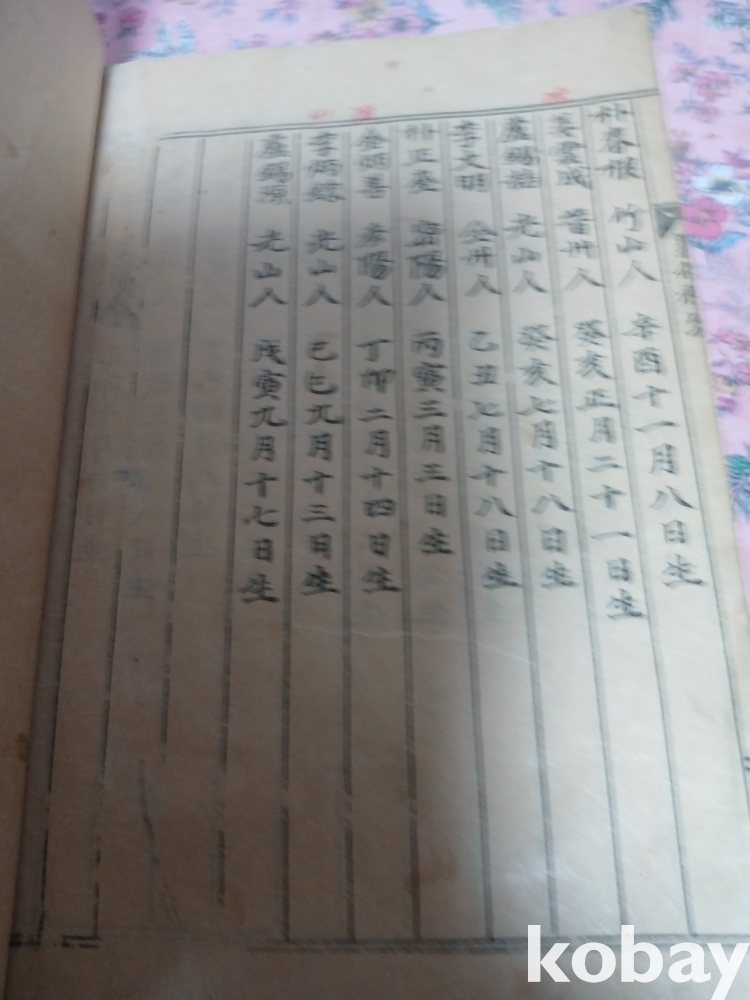 朴春 竹山人 辛酉十一月八日生
姜 成 晋州人 癸亥正月二十一日生
盧錫 光山人 癸亥七月十八日生
李文明 全州人 乙丑七月十八日生
朴正奎 密陽人 丙寅三月三日生
金炳喜 陽人 丁卯二月十四日生
李炳 光山人 己巳九月十三日生
盧錫 光山人 戊寅九月十七日生
kobay